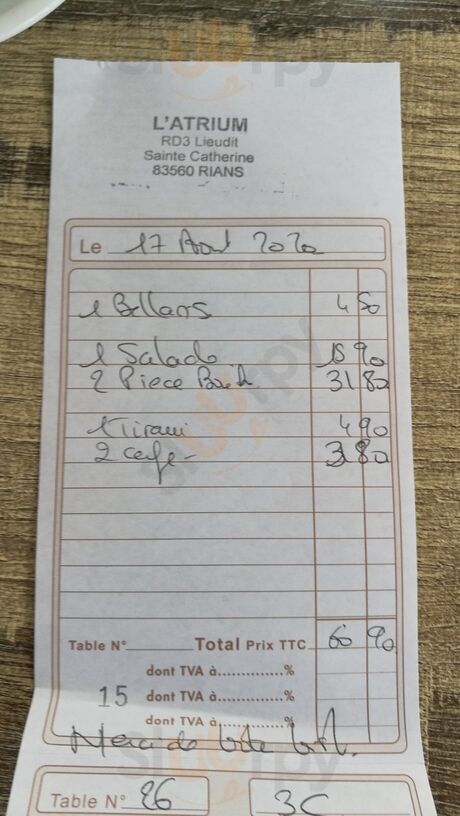 sluurpy
L'ATRIUM
RD3 Lieudit
Sainte Catherine
83560 RIANS
Le 17 Aout 2020
1 4 50
1 Salade 15 90
2 Piece 31 80
1 Tirami 4 90
2 cafe 3 80
Table N° Total Prix TTC 60 90
dont TVA à..............%
15 dont TVA à..............%
dont TVA à..............%
Merci de
Table N° 26 3C